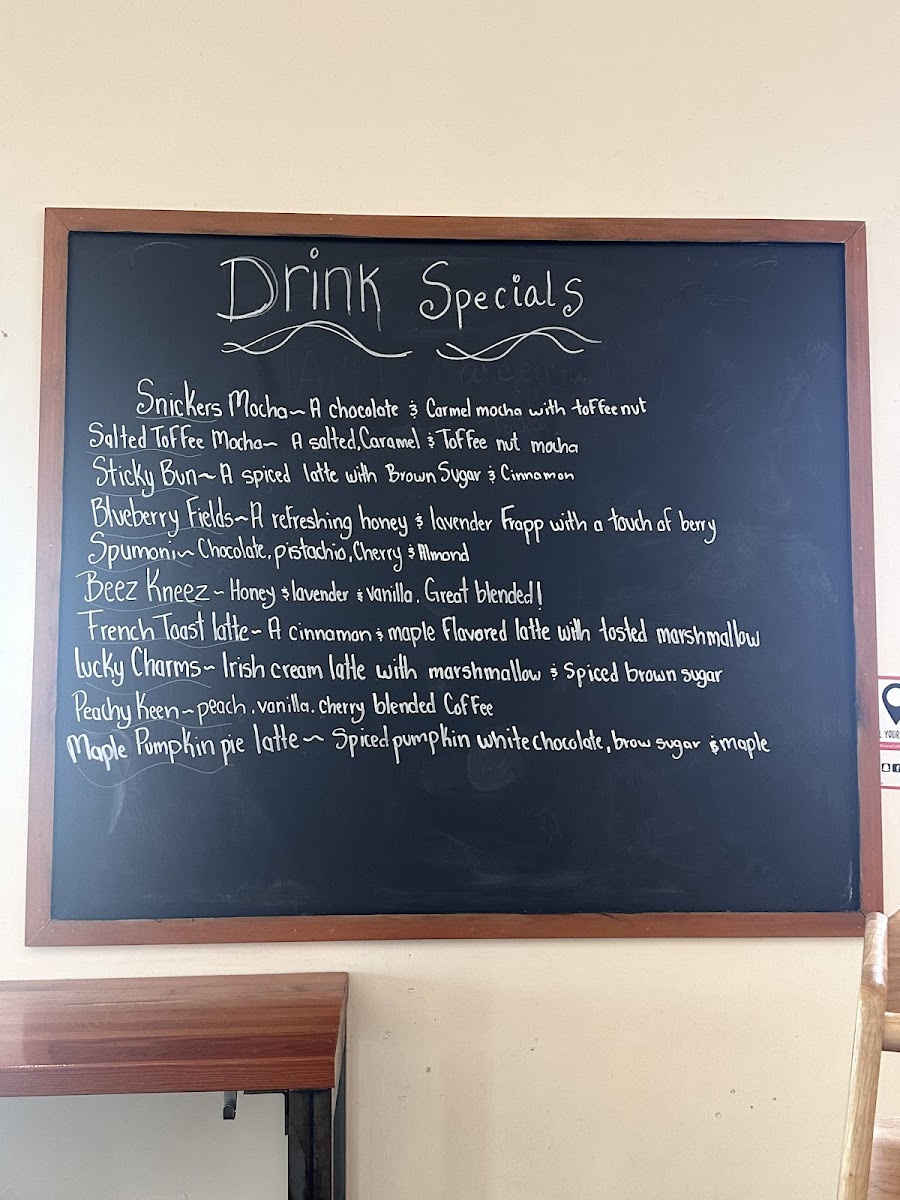 Drink Specials
Snickers Mocha~ A chocolate & Carmel mocha with toffee nut
Salted Toffee Mocha~ A salted, Caramel & Toffee nut mocha
Sticky Bun~ A spiced latte with Brown Sugar & Cinnamon
Blueberry Fields~ A refreshing honey & lavender Frapp with a touch of berry
Spumoni~ Chocolate, pistachio, Cherry & Almond
Beez Kneez ~ Honey & lavender & vanilla. Great blended!
French Toast latte~ A cinnamon & maple Flavored latte with tosted marshmallow
Lucky Charms~ Irish cream latte with marshmallow & Spiced brown sugar
Peachy Keen~ peach, vanilla, cherry blended Coffee
Maple Pumpkin pie latte ~ Spiced pumpkin white chocolate, brow sugar & maple
YOUR